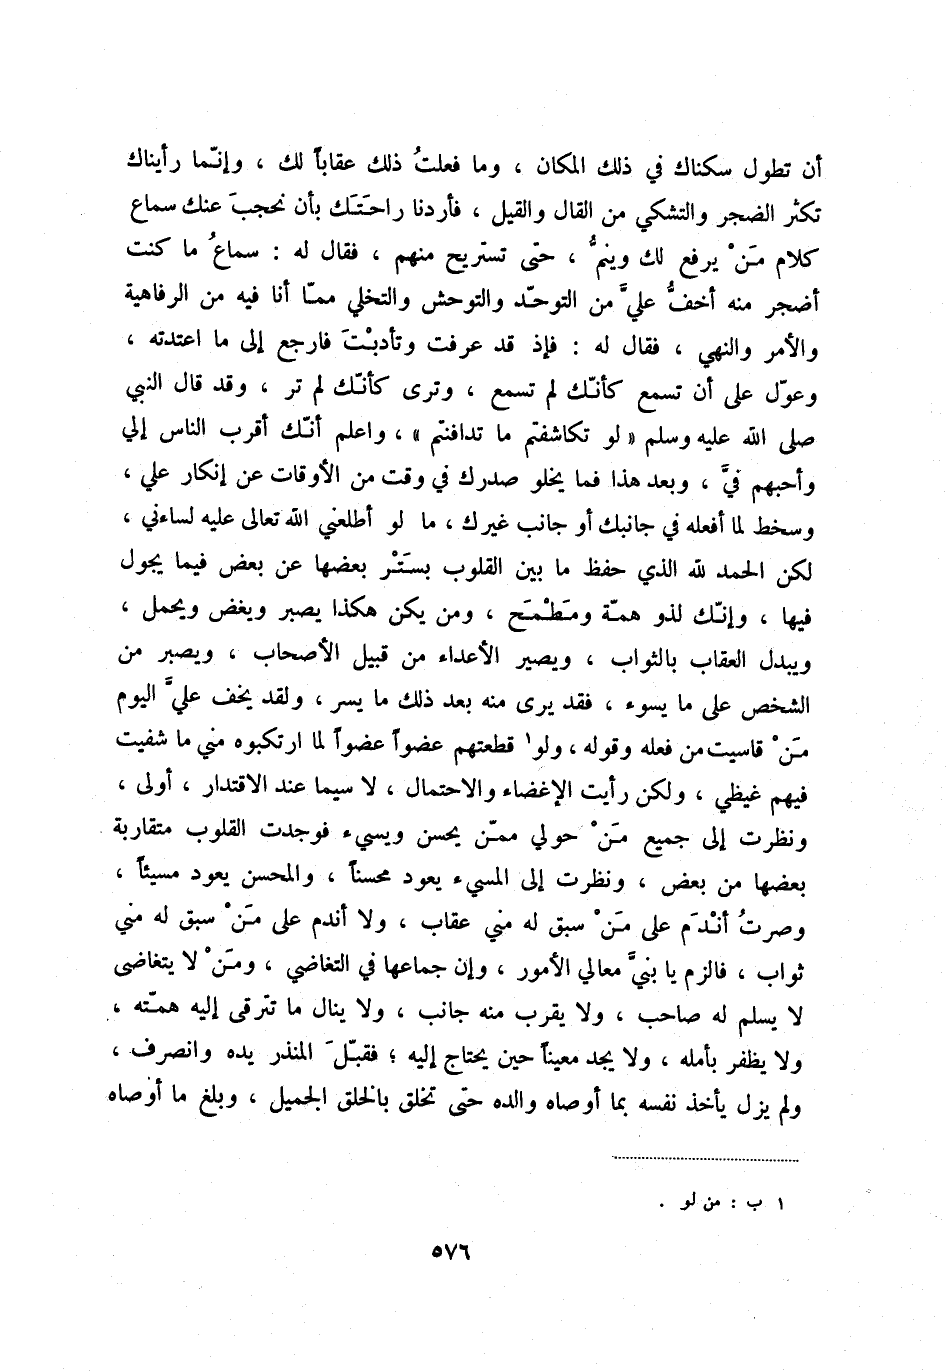 أن تطول سكناك في ذلك المكان ، وما فعلتُ ذلك عقاباً لك ، وإنّما رأيناك
تكثر الضجر والتشكي من القال والقيل ، فأردنا راحَتَك بأن نحجبَ عنك سماع
كلام مَنْ يرفع لك وينمُّ ، حتّى تستريح منهم ، فقال له : سماعُ ما كنت
أضجر منه أخفُّ عليَّ من التوحّد والتوحش والتخلي ممّا أنا فيه من الرفاهية
والأمر والنهي ، فقال له : فإذ قد عرفت وتأدبْتَ فارجع إلى ما اعتدته ،
وعوّل على أن تسمع كأنّك لم تسمع ، وترى كأنّك لم تر ، وقد قال النبي
صلى الله عليه وسلم « لو تكاشفتم ما تدافنتم » ، واعلم أنّك أقرب الناس إلي
وأحبهم فيَّ ، وبعد هذا فما يخلو صدرك في وقت من الأوقات عن إنكار علي ،
وسخط لما أفعله في جانبك أو جانب غيرك ، ما لو أطلعني الله تعالى عليه لساءني ،
لكن الحمد لله الذي حفظ ما بين القلوب بسَتْر بعضها عن بعض فيما يجول
فيها ، وإنّك لذو همّة ومَطْمَح ، ومن يكن هكذا يصبر ويغض ويحمل ،
ويبدل العقاب بالثواب ، ويصير الأعداء من قبيل الأصحاب ، ويصبر من
الشخص على ما يسوء ، فقد يرى منه بعد ذلك ما يسر ، ولقد يخف عليَّ اليوم
مَنْ قاسيت من فعله وقوله ، ولو١ قطعتهم عضواً عضواً لما ارتكبوه مني ما شفيت
فيهم غيظي ، ولكن رأيت الإغضاء والاحتمال ، لا سيما عند الاقتدار ، أولى ،
ونظرت إلى جميع مَنْ حولي ممّن يحسن ويسيء فوجدت القلوب متقاربة
بعضها من بعض ، ونظرت إلى المسيء يعود محسناً ، والمحسن يعود مسيئاً ،
وصرتُ أنْدَم على مَنْ سبق له مني عقاب ، ولا أندم على مَنْ سبق له مني
ثواب ، فالزم يا بنيَّ معالي الأمور ، وإن جماعها في التغاضي ، ومَنْ لا يتغاضى
لا يسلم له صاحب ، ولا يقرب منه جانب ، ولا ينال ما تترقى إليه همّته ،
ولا يظفر بأمله ، ولا يجد معيناً حين يحتاج إليه ؛ فقبّلَ المنذر يده وانصرف ،
ولم يزل يأخذ نفسه بما أوصاه والده حتّى تخلق بالخلق الجميل ، وبلغ ما أوصاه
١ ب : من لو .
٥٧٦